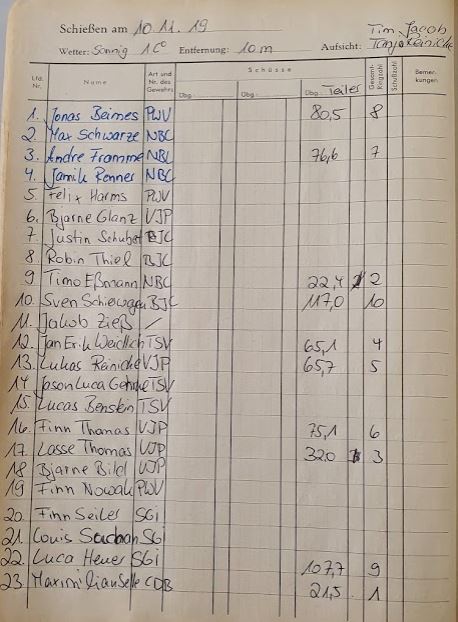 Schießen am 10.11.19 Tim Jacob
Wetter: Sonnig 1C° Entfernung: 10m Aufsicht: Tanja Reinicke
Lfd. Nr. Name Art und Nr. des Gewehrs Schüsse Gesamt-Ringzahl Schußzahl Bemer-kungen
Übg. Übg. Übg. Teiler
1. Jonas Beimes PWV 80,5 8
2. Max Schwarze NBC
3. Andre Framme NBC 76,6 7
4. Jamik Renner NBC
5. Felix Harms PWV
6. Bjarne Glanz VJP
7. Justin Schubert BJC
8. Robin Thiel BJC
9 Timo Eßmann NBC 22,4 2
10. Sven Schiewagen BJC 117,0 10
11. Jakob Zieß /
12. Jan Erik Weidlich TSV 65,1 4
13. Lukas Reinicke VJP 65,7 5
14 Jason Luca Gehrke TSV
15. Lucas Benstein TSV
16. Finn Thomas VJP 75,1 6
17. Lasse Thomas VJP 32,0 3
18 Bjarne VJP
19 Finn Nowak PWV
20. Finn Seiler SGi
21. Louis SGi
22. Luca Heuer SGi 107,7 9
23. Maximilian CDB 21,5 1